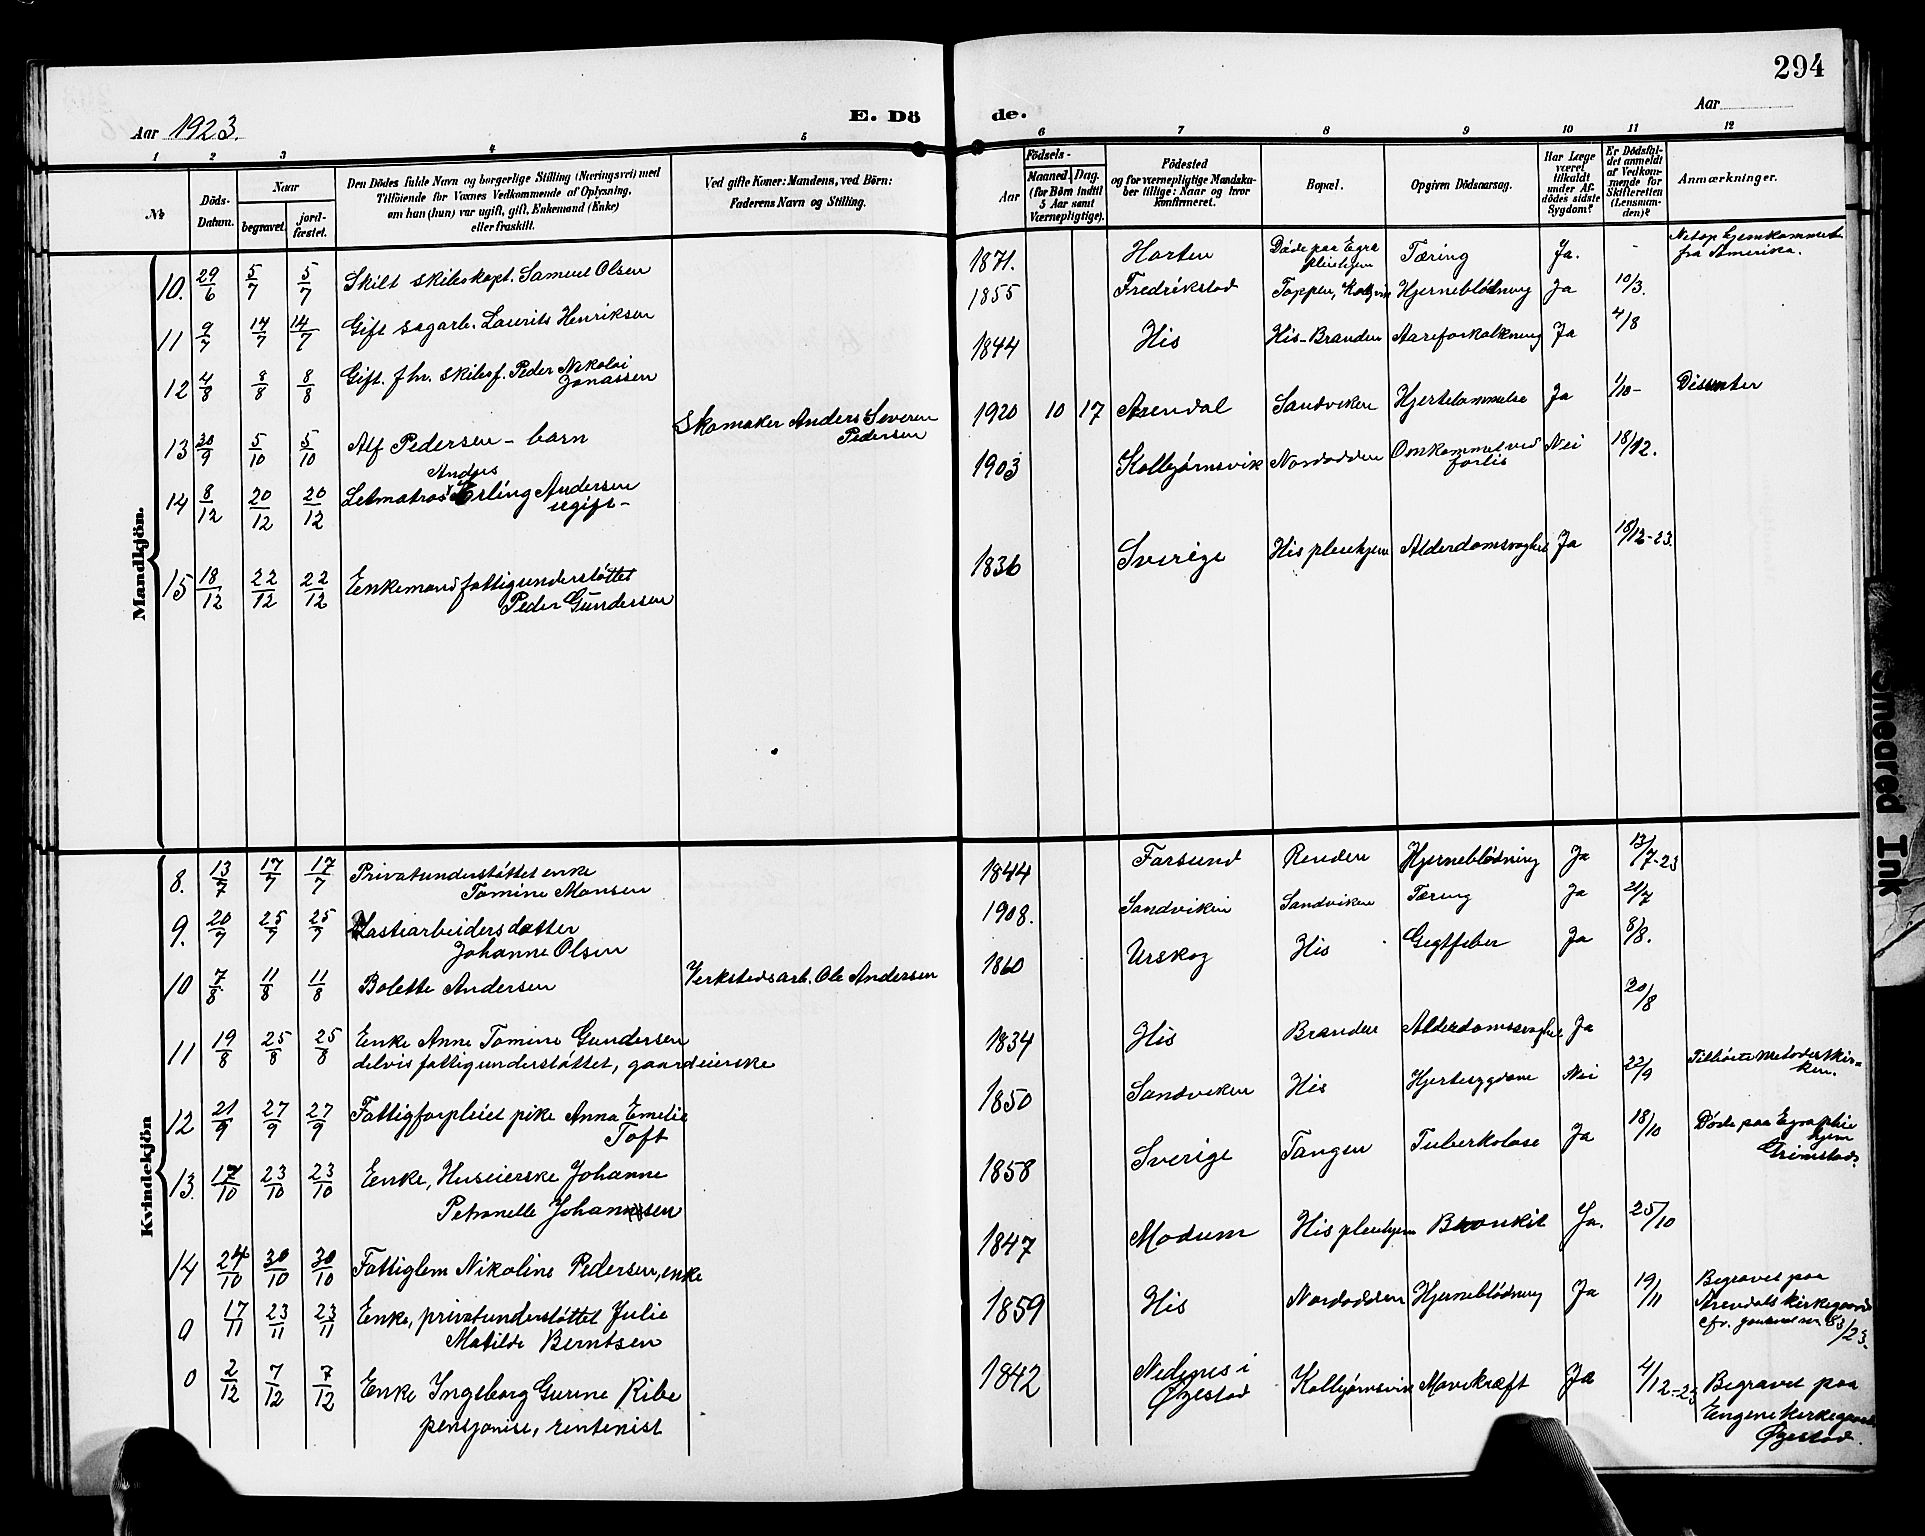 294
Aar 1923.
E. Dö de.
Aar
1 2 3 4 5 6 7 8 9 10 11 12
№
Döds-Datum.
Naar
begravet.
jordfæstet.
Den Dödes fulde Navn og borgerlige Stilling (Næringsvei) med
Tilföiende for Voxnes Vedkommende af Oplysning,
om han (hun) var ugift, gift, Enkemand (Enke)
eller fraskilt.
Ved gifte Koner: Mandens, ved Börn:
Faderens Navn og Stilling.
Födsels-
Aar
Maaned. Dag.
(for Börn indtil
5 Aar samt
Værnepligtige).
Födested
og for værnepligtige Mandskaber tillige: Naar og hvor
konfirmeret.
Bopæl.
Opgiven Dödsaarsag.
Har Læge
været
tilkaldt
under Afdödes sidste
Sygdom?
Er Dödsfaldet anmeldt
af Vedkommende for
Skifteretten
(Lensmanden)?
Anmærkninger.
Mandkjön.
10. 29/6 5/7 5/7 Skilt skibskapt. Samuel Olsen 1871. Horten Døde paa Egra pleiehjem Tæring Ja. - Netop hjemkommet fra Amerika.
11 9/7 14/7 14/7 Gift sagarb. Laurits Henriksen 1855 Fredrikstad Toppen, Kolbjvik Hjerneblødning Ja 10/3.
12 4/8 8/8 8/8 Gift. fhv. skibsf. Peder Nikolai Jonassen 1844 His His-Branden Aareforkalkning Ja 4/8
13 30/9 5/10 5/10 Alf Pedersen - barn Skomaker Anders Severin Pedersen 1920 10 17 Arendal Sandviken Hjertelammelse Ja 1/10- Dissenter
14 8/12 20/12 20/12 Letmatros Anders Erling Andersen ugift- 1903 Kolbjørnsvik Nordodden Omkommet ved forlis Nei 18/12.
15 18/12 22/12 22/12 Enkemand fattigunderstøttet Peder Gundersen 1836 Sverige His pleiehjem Alderdomsvaghet Ja 18/12-23.
Kvindekjön
8. 13/7 17/7 17/7 Privatunderstøttet enke Tomine Monsen 1844 Farsund Renden Hjerneblødning Ja 13/7-23
9. 20/7 25/7 25/7 Lastearbeidersdatter Johanne Olsen 1908. Sandviken Sandviken Tæring Ja 21/7
10 7/8 11/8 11/8 Bolette Andersen Verkstedsarb. Ole Andersen 1860 Urskog His Gigtfeber Ja 8/8.
11 19/8 25/8 25/8 Enke Anne Tomine Gundersen delvis fattigunderstøttet, gaardeierske 1834 His Branden Alderdomssvaghet Ja 20/8
12 21/9 27/9 27/9 Fattigforpleiet pike Anna Emelie Toft 1850 Sandviken His Hjertesygdom Nei 22/9 Tilhørte Metodistkirken.
13. 17/10 23/10 23/10 Enke, Huseierske Johanne Petronelle Johannsen 1858 Sverige Tangen Tuberkolose Ja 18/10 Døde paa Egra pleiehjem Grimstad.
14 24/10 30/10 30/10 Fattiglem Nikoline Pedersen, enke 1847 Modum His pleiehjem Bronkit Ja. 25/10
0 17/11 23/11 23/11 Enke, privatunderstøttet Julie Matilde Berntsen 1859 His Nordodden Hjerneblødning Ja 19/11 Begravet paa Arendals kirkegaard cfr. 63/23.
0 2/12 7/12 7/12 Enke Ingeborg Gurine Ribe pensjonist, rentenist 1842 Nedenes i Øyestad Kolbjørnsvik Mavekræft Ja 4/12-23 Begravet paa Engene kirkegaard Øyestad.
Smeared Ink